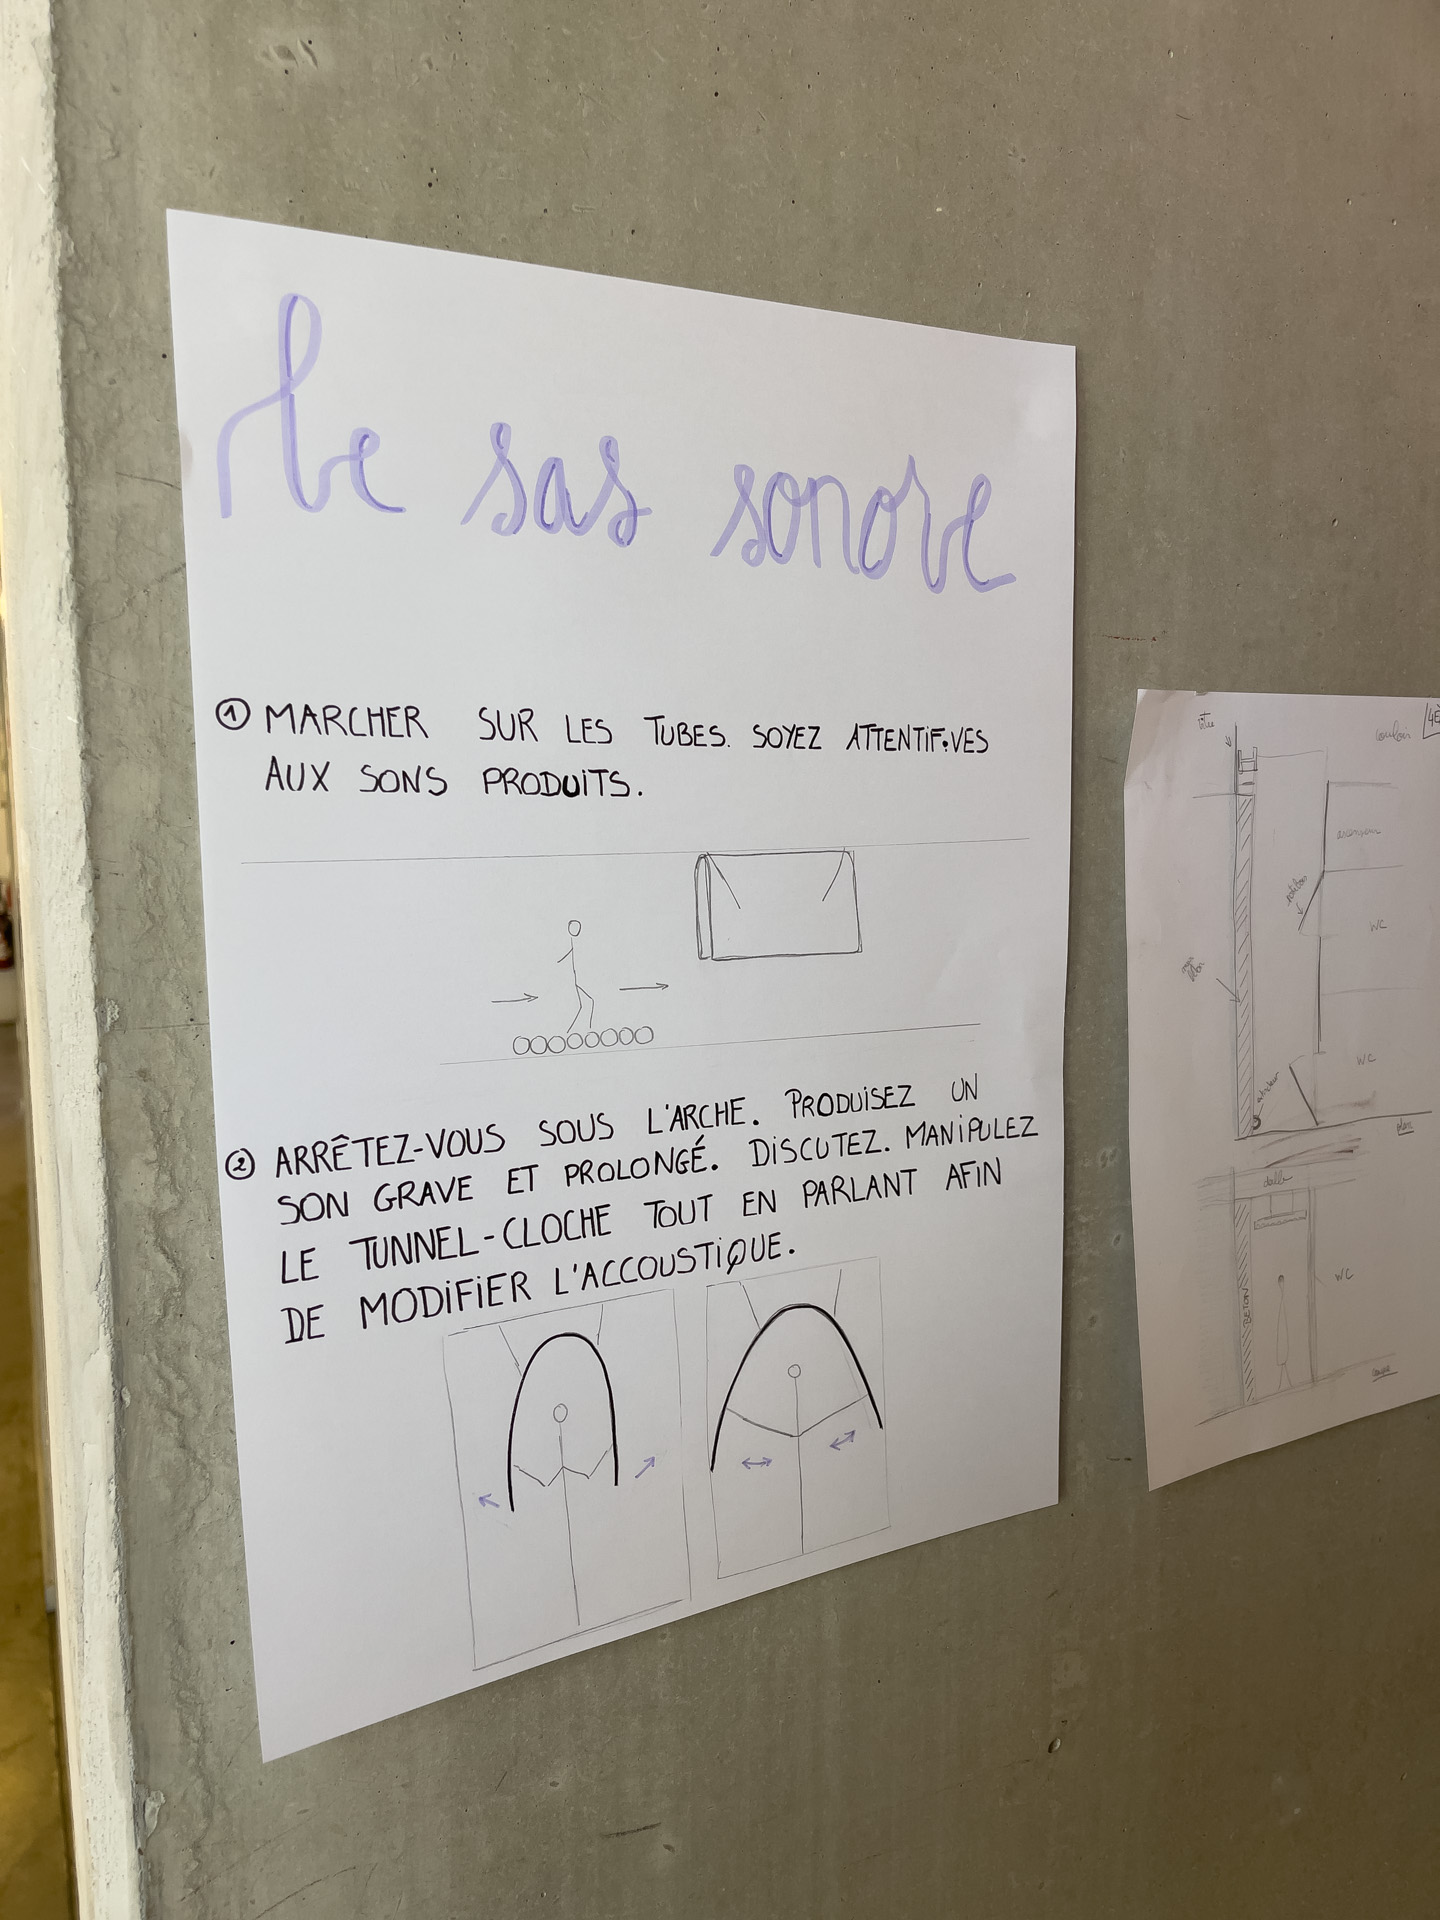 le sas sonore
① MARCHER SUR LES TUBES. SOYEZ ATTENTIF·VES
AUX SONS PRODUITS.
② ARRÊTEZ-VOUS SOUS L'ARCHE. PRODUISEZ UN
SON GRAVE ET PROLONGÉ. DISCUTEZ. MANIPULEZ
LE TUNNEL-CLOCHE TOUT EN PARLANT AFIN
DE MODIFIER L'ACCOUSTIQUE.
couloir
ascenseur
WC
WC
plan
dalle
WC
BETON
coupe